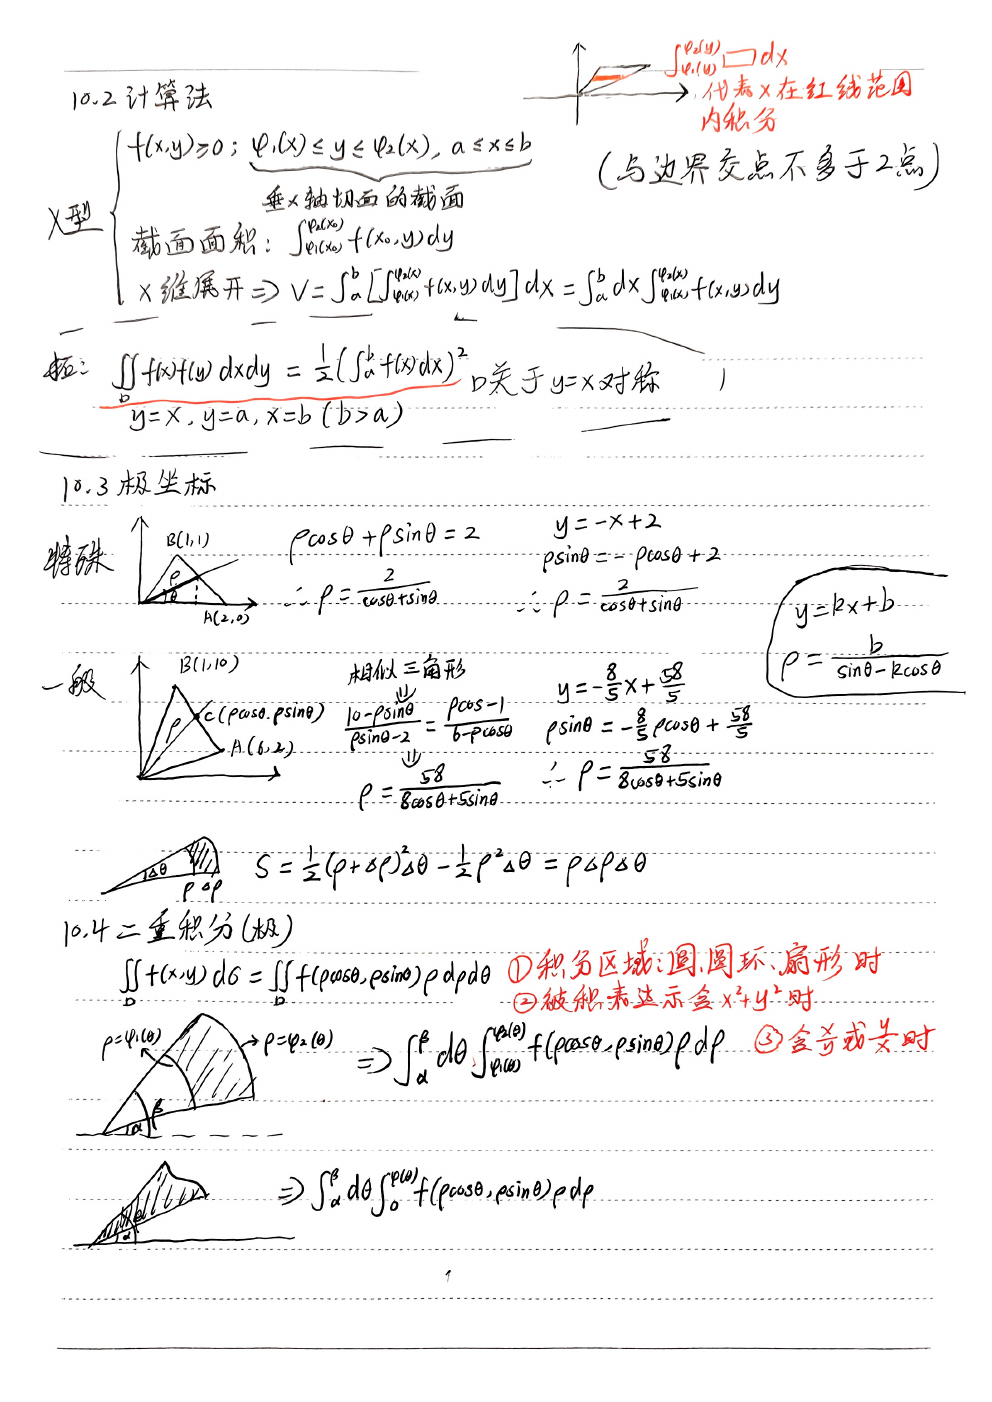 ∫_{φ1(y)}^{φ2(y)} □ dx
代表x在红线范围
内积分
10.2 计算法
(与边界交点不多于2点)
X型
f(x,y)≥0; φ1(x)≤y≤φ2(x), a≤x≤b
垂x轴切面的截面
截面面积: ∫_{φ1(x0)}^{φ2(x0)} f(x0,y)dy
X维展开 ⇒ V=∫_a^b [∫_{φ1(x)}^{φ2(x)} f(x,y)dy]dx = ∫_a^b dx ∫_{φ1(x)}^{φ2(x)} f(x,y)dy
∬_D f(x)f(y)dxdy = 1/2 (∫_a^b f(x)dx)^2 D关于y=x对称
y=x, y=a, x=b (b>a)
10.3 极坐标
特殊
B(1,1)
ρ
θ
A(2,0)
ρcosθ+ρsinθ=2
∴ ρ=2/(cosθ+sinθ)
y=-x+2
ρsinθ=-ρcosθ+2
∴ ρ=2/(cosθ+sinθ)
y=kx+b
ρ=b/(sinθ-kcosθ)
一般
B(1,10)
ρ
C(ρcosθ.ρsinθ)
A(6,2)
相似三角形
(10-ρsinθ)/(ρsinθ-2)=(ρcos-1)/(6-ρcosθ)
⇓
ρ=58/(8cosθ+5sinθ)
y=-8/5x+58/5
ρsinθ=-8/5ρcosθ+58/5
∴ ρ=58/(8cosθ+5sinθ)
Δθ
ρ Δρ
S=1/2(ρ+Δρ)^2Δθ-1/2ρ^2Δθ=ρΔρΔθ
10.4 二重积分(极)
∬_D f(x,y)dσ=∬_D f(ρcosθ,ρsinθ)ρdρdθ
①积分区域:圆、圆环、扇形时
②被积表达示含x²+y²时
③含x/y或y/x时
ρ=φ1(θ)
ρ=φ2(θ)
β
α
⇒∫_α^β dθ ∫_{φ1(θ)}^{φ2(θ)} f(ρcosθ,ρsinθ)ρdρ
α
⇒∫_α^β dθ ∫_0^{φ(θ)} f(ρcosθ,ρsinθ)ρdρ